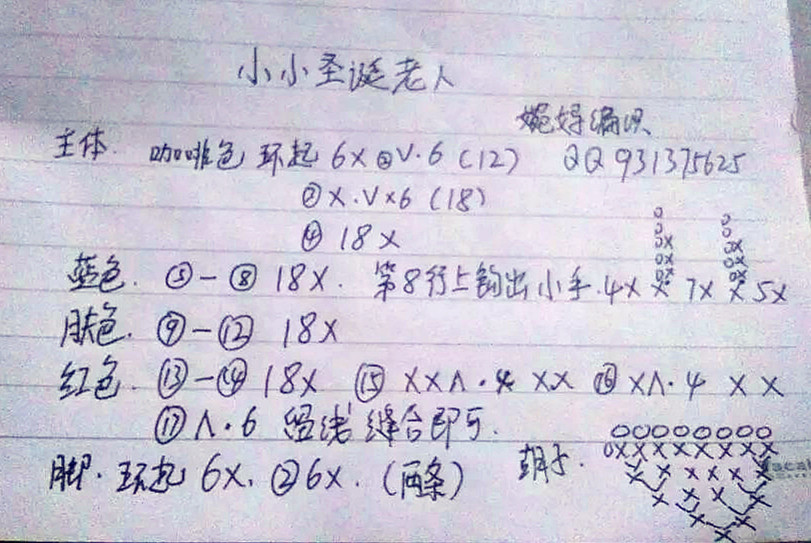 小小圣诞老人
婉婷编织
主体. 咖啡色 环起 6X ②V·6 (12) QQ 931375625
③X·V×6 (18)
④ 18X
蓝色. ⑤-⑧ 18X. 第8行上钩出小手. 4X X 7X X 5X
肤色. ⑨-⑫ 18X
红色. ⑬-⑭ 18X ⑮ XXΛ·4 XX ⑯ XΛ·4 X X
⑰ Λ·6 留线 缝合即可.
脚. 环起 6X. ②6X. (两条) 胡子.
OOOOOOOO
OXXXXXXXX